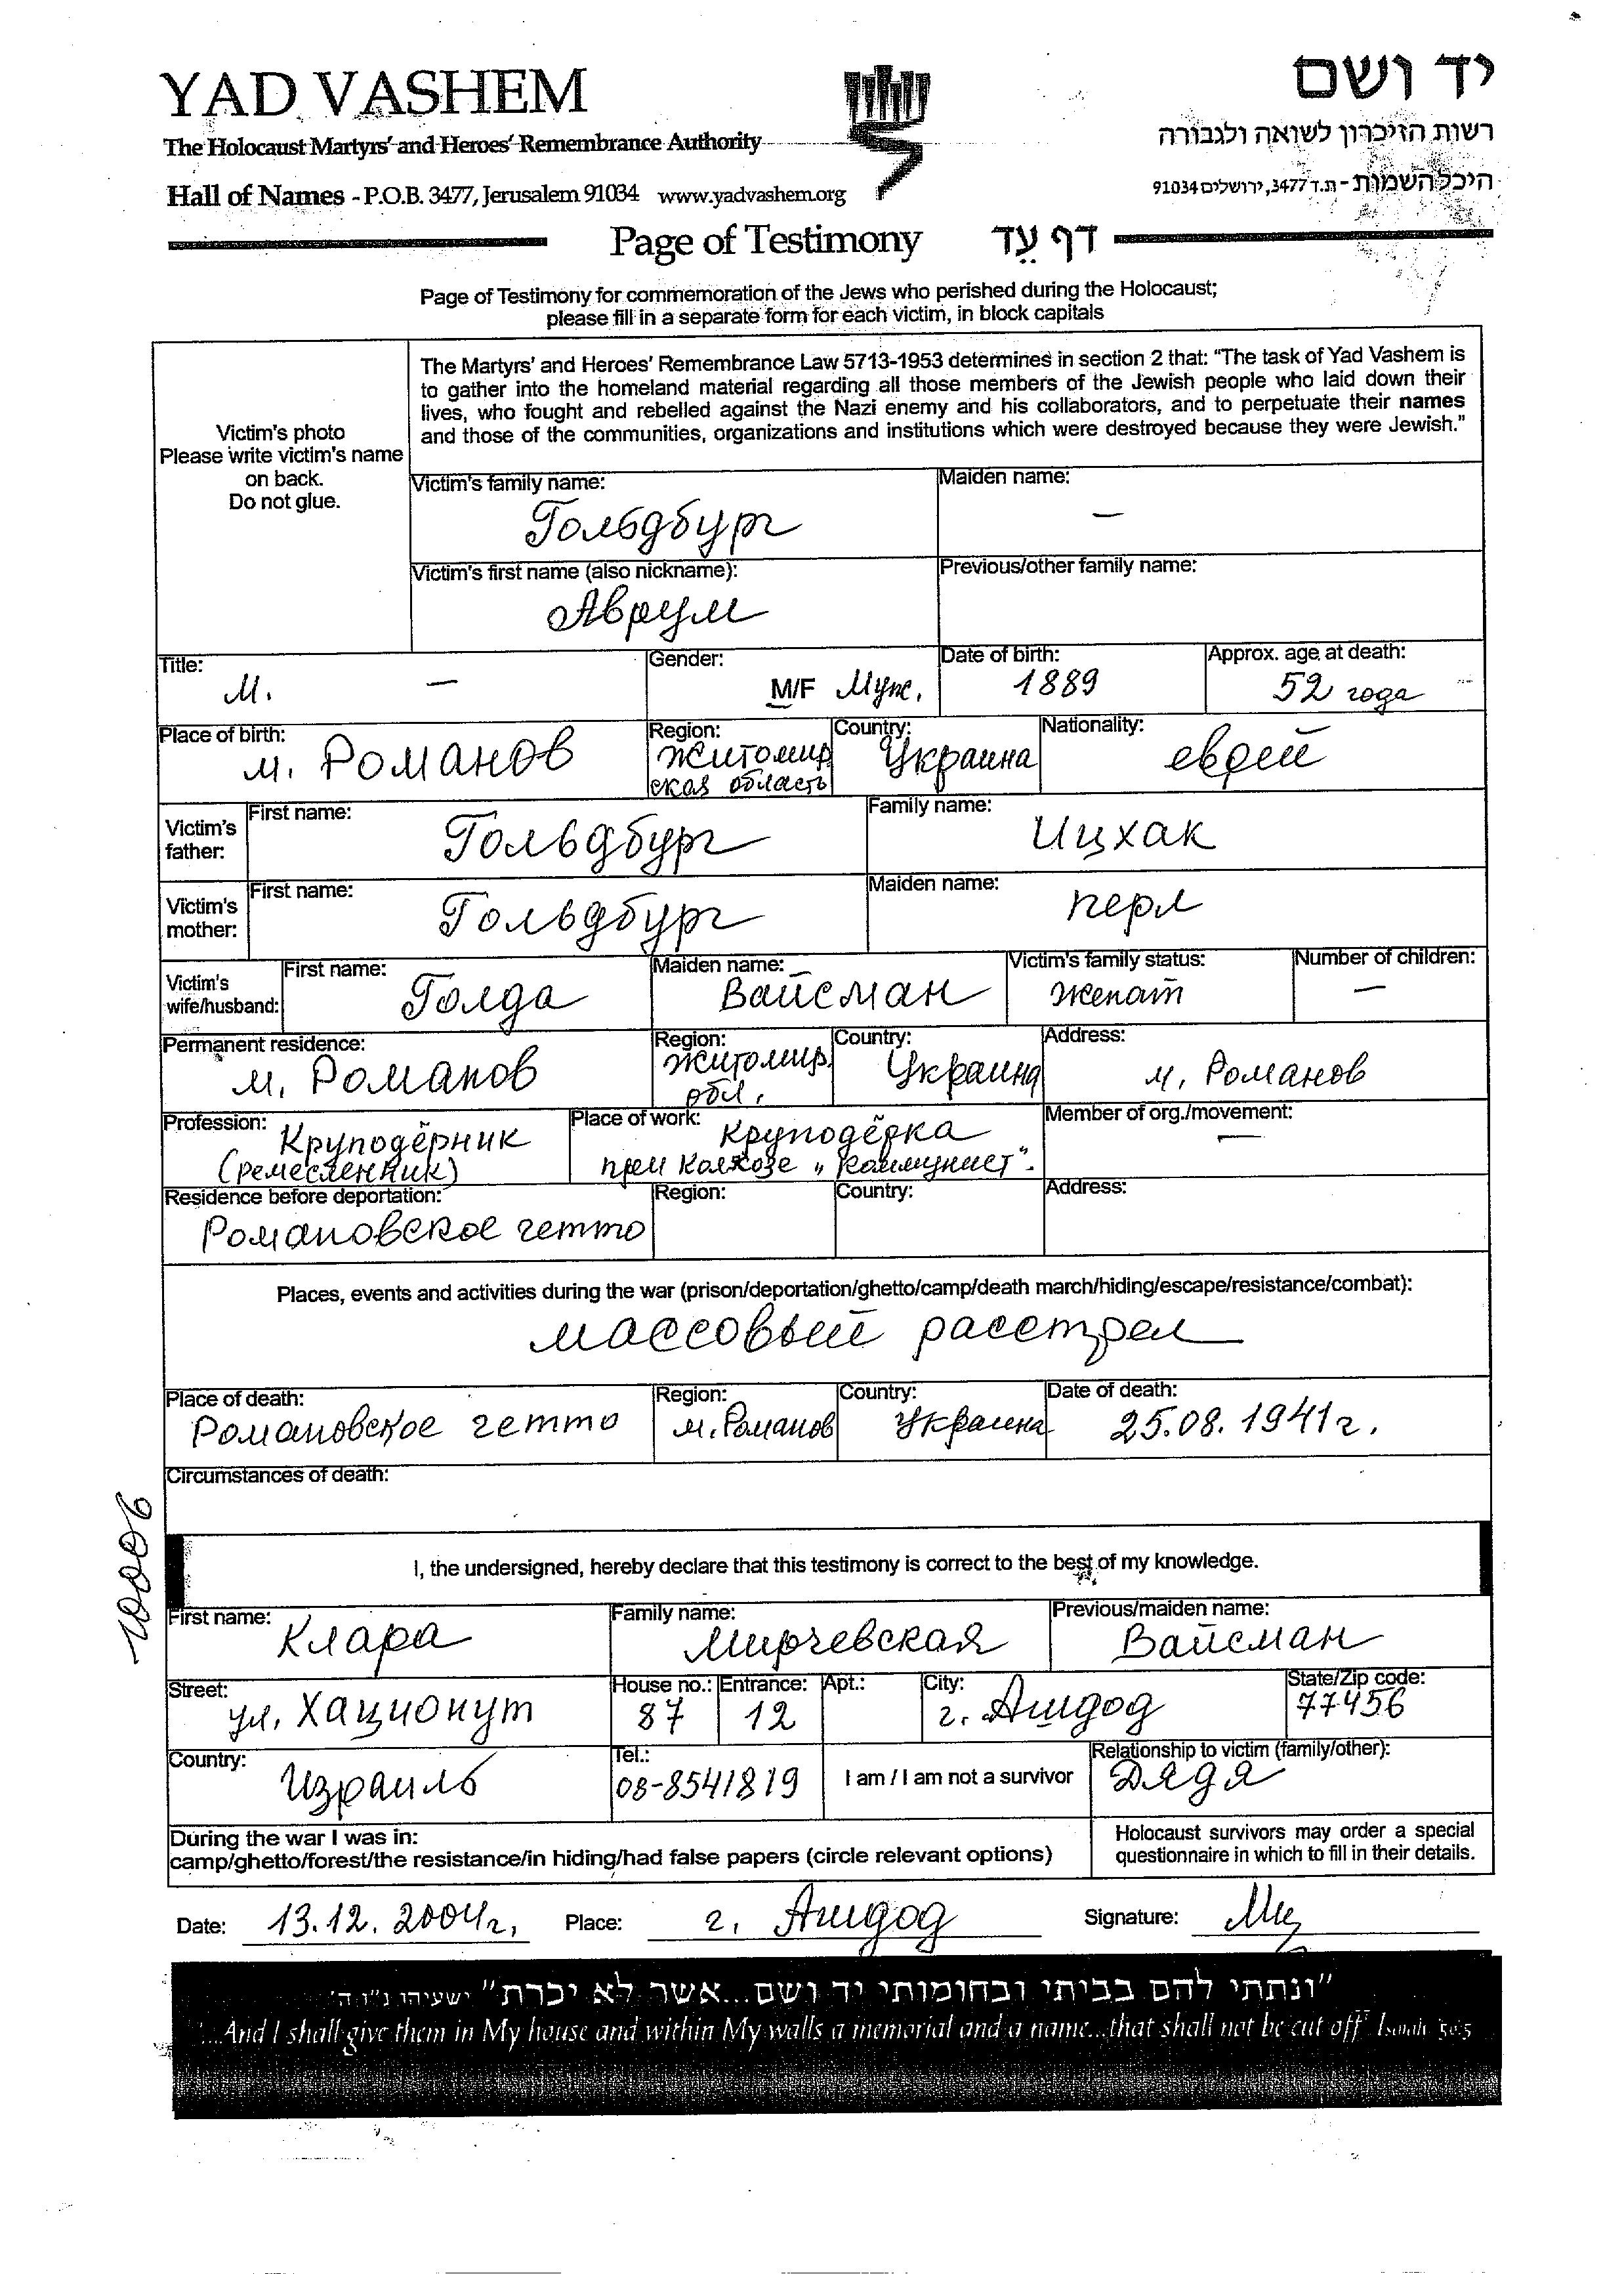 YAD VASHEM
יד ושם
The Holocaust Martyrs' and Heroes' Remembrance Authority
רשות הזיכרון לשואה ולגבורה
Hall of Names - P.O.B. 3477, Jerusalem 91034 www.yadvashem.org
היכל השמות - ת.ד 3477, ירושלים 91034
Page of Testimony דף עֵד
Page of Testimony for commemoration of the Jews who perished during the Holocaust;
please fill in a separate form for each victim, in block capitals
Victim's photo
Please write victim's name
on back.
Do not glue.
The Martyrs' and Heroes' Remembrance Law 5713-1953 determines in section 2 that: "The task of Yad Vashem is
to gather into the homeland material regarding all those members of the Jewish people who laid down their
lives, who fought and rebelled against the Nazi enemy and his collaborators, and to perpetuate their names
and those of the communities, organizations and institutions which were destroyed because they were Jewish."
Victim's family name: Maiden name:
Гольдбург –
Victim's first name (also nickname): Previous/other family name:
Аврум
Title: Gender: Date of birth: Approx. age at death:
М. – M/F Муж. 1889 52 года
Place of birth: Region: Country: Nationality:
м. Романов Житомир Украина еврей
ская область
Victim's father: First name: Family name:
Гольдбург Ицхак
Victim's mother: First name: Maiden name:
Гольдбург перл
Victim's wife/husband: First name: Maiden name: Victim's family status: Number of children:
Голда Вайсман женат –
Permanent residence: Region: Country: Address:
м. Романов Житомир. Украина м. Романов
обл.
Profession: Place of work: Member of org./movement:
Круподёрник Круподёрка –
(ремесленник) при колхозе „Коммунист".
Residence before deportation: Region: Country: Address:
Романовское гетто
Places, events and activities during the war (prison/deportation/ghetto/camp/death march/hiding/escape/resistance/combat):
массовый расстрел
Place of death: Region: Country: Date of death:
Романовское гетто м. Романов Украина 25.08.1941г.
Circumstances of death:
I, the undersigned, hereby declare that this testimony is correct to the best of my knowledge.
First name: Family name: Previous/maiden name:
Клара Мирчевская Вайсман
Street: House no.: Entrance: Apt.: City: State/Zip code:
ул. Хационут 87 12 г. Ашдод 77456
Country: Tel.: Relationship to victim (family/other):
Израиль 08-8541819 I am / I am not a survivor Дядя
During the war I was in:
camp/ghetto/forest/the resistance/in hiding/had false papers (circle relevant options)
Holocaust survivors may order a special
questionnaire in which to fill in their details.
Date: 13.12.2004г. Place: г. Ашдод Signature:
"ונתתי להם בביתי ובחומותי יד ושם...אשר לא יכרת" ישעיהו נ"ו ה'
"...And I shall give them in My house and within My walls a memorial and a name...that shall not be cut off" Isaiah 56:5